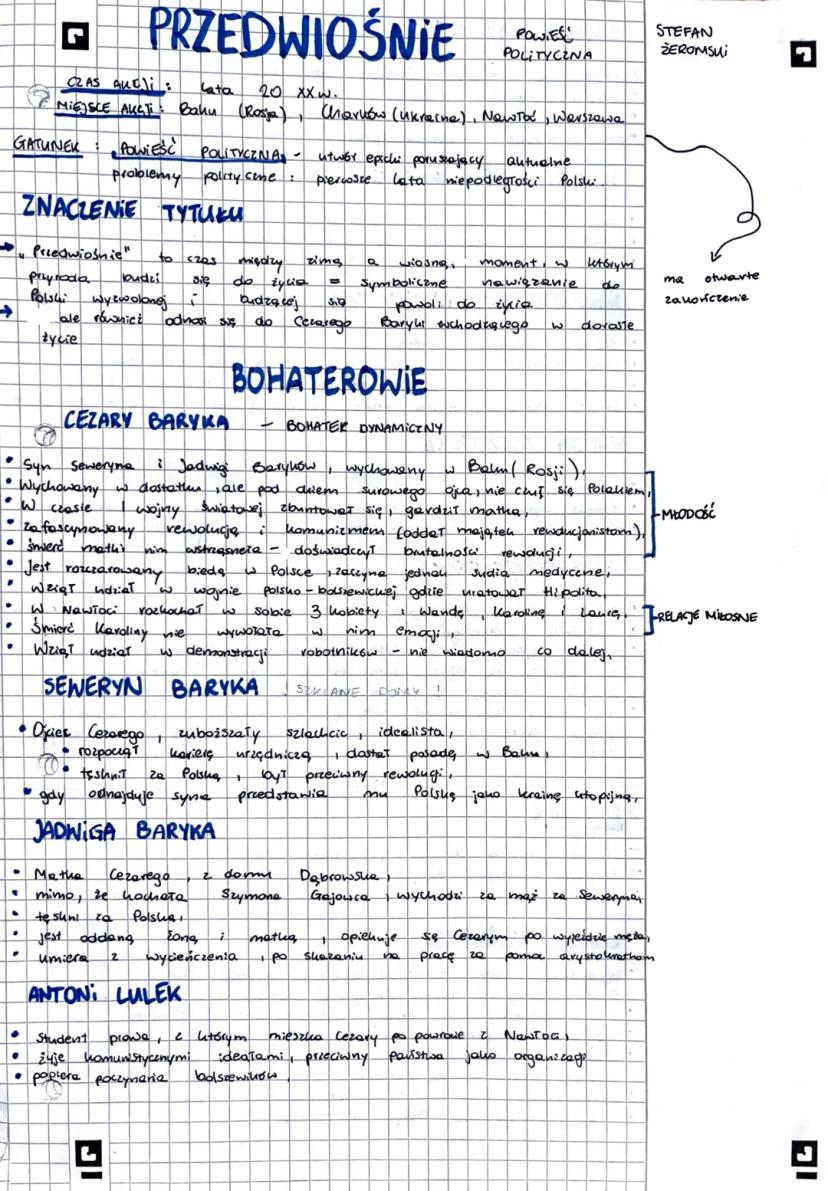 PRZEDWIOŚNIE
POWIEŚĆ
POLITYCZNA
STEFAN
ŻEROMSKI
CZAS AKCJI : lata 20 XX w.
MIEJSCE AKCJI : Baku (Rosja), Charków (Ukraina), Nawłoć, Warszawa
GATUNEK : POWIEŚĆ POLITYCZNA - utwór epicki poruszający aktualne
problemy polityczne : pierwsze lata niepodległości Polski.
ma otwarte
zakończenie
ZNACZENIE TYTUŁU
"Przedwiośnie" to czas między zimą a wiosną, moment, w którym
przyroda budzi się do życia = symboliczne nawiązanie do
Polski wyzwolonej i budzącej się powoli do życia
ale również odnosi się do Cezarego Baryki wchodzącego w dorosłe
życie
BOHATEROWIE
CEZARY BARYKA - BOHATER DYNAMICZNY
• Syn Seweryna i Jadwigi Baryków, wychowany w Baku (Rosji),
• Wychowany w dostatku, ale pod okiem surowego ojca, nie czuł się Polakiem,
• W czasie I wojny światowej zbuntował się, gardził matką,
• zafascynowany rewolucją i komunizmem (oddał majątek rewolucjonistom),
• śmierć matki nim wstrząsnęła - doświadczył brutalności rewolucji,
MŁODOŚĆ
• Jest rozczarowany biedą w Polsce, zaczyna jednak studia medyczne,
• Wziął udział w wojnie polsko-bolszewickiej gdzie uratował Hipolita,
• W Nawłoci rozkochał w sobie 3 kobiety : Wandę, Karolinę i Laurę,
• Śmierć Karoliny nie wywołała w nim emocji,
RELACJE MIŁOSNE
• Wziął udział w demonstracji robotników - nie wiadomo co dalej,
SEWERYN BARYKA ! SZKLANE DOMY !
• Ojciec Cezarego, zuboższały szlachcic, idealista,
• rozpoczął karierę urzędniczą, dostał posadę w Baku,
• tęsknił za Polską, był przeciwny rewolucji,
• gdy odnajduje syna przedstawia mu Polskę jako krainę utopijną,
JADWIGA BARYKA
• Matka Cezarego, z domu Dąbrowska,
• mimo, że kochała Szymona Gajowca, wychodzi za mąż za Seweryna,
• tęskni za Polską,
• jest oddaną żoną i matką, opiekuje się Cezarym po wyjeździe męża,
• umiera z wycieńczenia, po skazaniu na pracę za pomoc arystokratkom
ANTONI LULEK
• Student prawa, z którym mieszka Cezary po powrocie z Nawłoci,
• żyje komunistycznymi ideałami, przeciwny państwa jako organizacji
• popiera poczynania bolszewików,